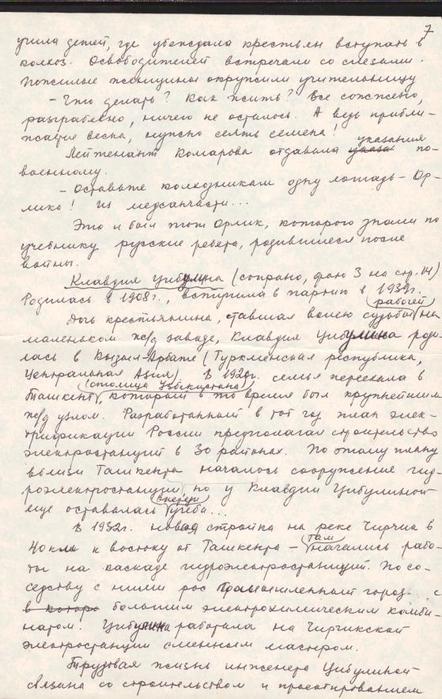 7
учила детей, где убеждала крестьян вступать в
колхоз. Освободителей встречали со слезами.
Пожилые женщины окружили учительницу
- Что делать? Как жить? Все сожжено,
разграблено, ничего не осталось. А ведь прибли-
жается весна, нужно сеять семена!
указания
Лейтенант Комарова отдавала указан по-
военному.
- Оставьте колхозникам одну лошадь - Ор-
лика! Из медсанчасти...
Это и был тот Орлик, которого знали по
учебнику русские ребята, родившиеся после
войны.
Клавдия Цибулина (сопрано, фото 3 на стр. 14)
Родилась в 1908г., вступила в партию в 1939г.
рабочей
Дочь крестьянина, ставшая волею судьбы на
маленьком ж/д заводе, Клавдия Цибулина роди-
лась в Кызыл-Арвате (Туркменская республика,
Центральная Азия). В 1920г. семья переехала в
(столица Узбекистана)
Ташкент, который в то время был крупнейшим
ж/д узлом. Разработанный в тот год план элек-
трификации России предполагал строительство
электростанций в 30 районах. По этому плану
вблизи Ташкента началось сооружение гид-
роэлектростанции, но у Клавдии Цибулиной
впереди
еще оставалась учеба...
В 1932г. новая стройка на реке Чирчик в
там
40 км к востоку от Ташкента - начались рабо-
ты на каскаде гидроэлектростанций. По со-
седству с ними рос промышленный город с
в которо большим электрохимическим комби-
натом! Цибулина работала на Чирчикской
электростанции сменным мастером.
Трудовая жизнь инженера Цибулиной
связана со строительством и проектированием